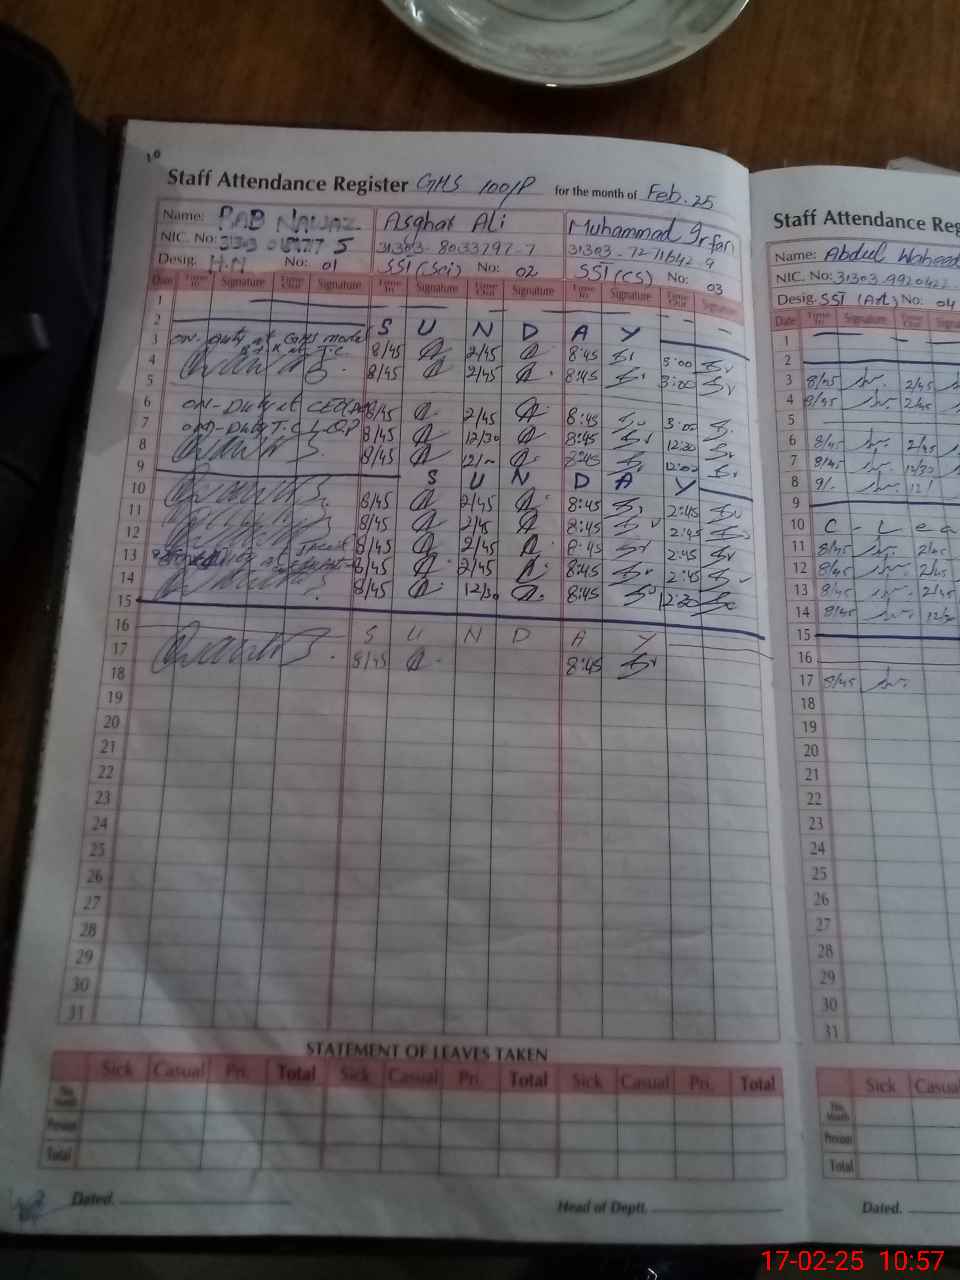 10
Staff Attendance Register GHS 100/P for the month of Feb. 25
Name: RAB NAWAZ Asghar Ali Muhammad Irfan
NIC. No: 31303 31303-8033797-7 31303-7271642-9
Desig. H.M No: 01 SSI (Sci) No: 02 SSI (CS) No: 03
Date Time In Signature Time Out Signature Time In Signature Time Out Signature Time In Signature Time Out Signature
1
2 S U N D A Y
3 ON-Duty at GHS 8/45 2/45 8:45 3:00
4 8/45 2/45 8:45 3:00
5
6 ON-Duty at CEO 8/45 2/45 8:45 3:00
7 ON-Duty T.C L.Q.P 8/45 12/30 8:45 12:30
8 8/45 12/- 8:45 12:00
9 S U N D A Y
10 8/45 2/45 8:45 2:45
11 8/45 2/45 8:45 2:45
12 8/45 2/45 8:45 2:45
13 8/45 2/45 8:45 2:45
14 8/45 12/30 8:45 12:30
15
16 S U N D A Y
17 8/45 8:45
18
19
20
21
22
23
24
25
26
27
28
29
30
31
STATEMENT OF LEAVES TAKEN
Sick Casual Pri. Total Sick Casual Pri. Total Sick Casual Pri. Total
This Month
Previous
Total
Dated. Head of Deptt.
Staff Attendance Reg
Name: Abdul Waheed
NIC. No: 31303-9920422-
Desig. SSI (Art) No: 04
Date Time In Signature Time Out Signature
1
2
3 8/45 2/45
4 8/45 2/45
5
6 8/45 2/45
7 8/45 12/30
8 9/- 12/
9
10 C - L e a
11 8/45 2/45
12 8/45 2/45
13 8/45 2/45
14 8/45 12/30
15
16
17 8/45
18
19
20
21
22
23
24
25
26
27
28
29
30
31
Sick Casual
This Month
Previous
Total
Dated.
17-02-25 10:57